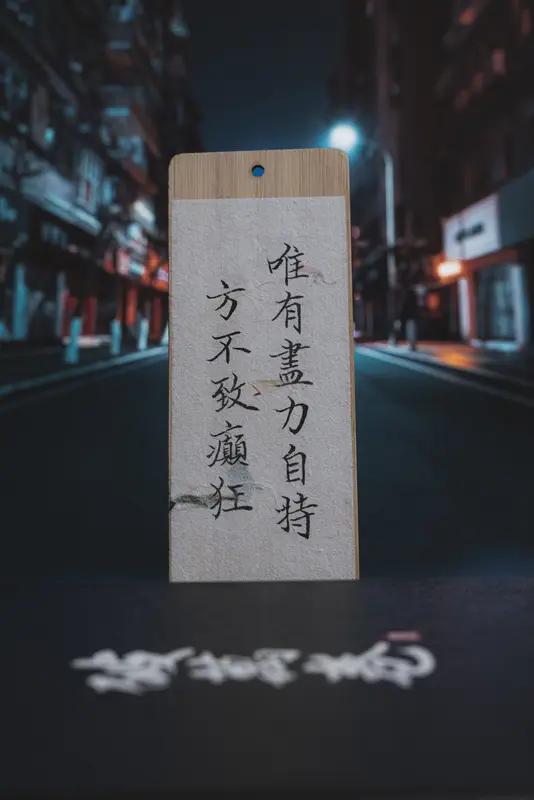 唯有盡力自持
方不致癲狂